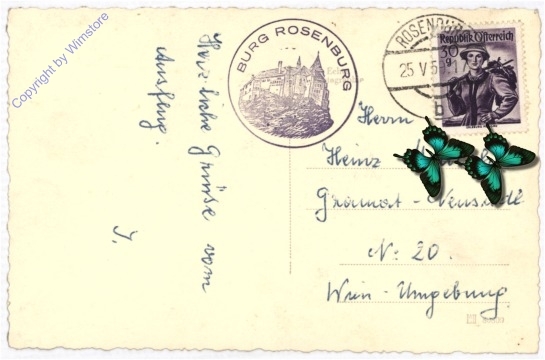 Copyright by Wimstore
Herzliche Grüsse vom
Ausflug.
J.
BURG ROSENBURG
ROSENBURG
25 V 5
b
Republik Österreich
30
g
Herrn
Heinz
Gramat-Neusiedl
No 20.
Wien-Umgebung